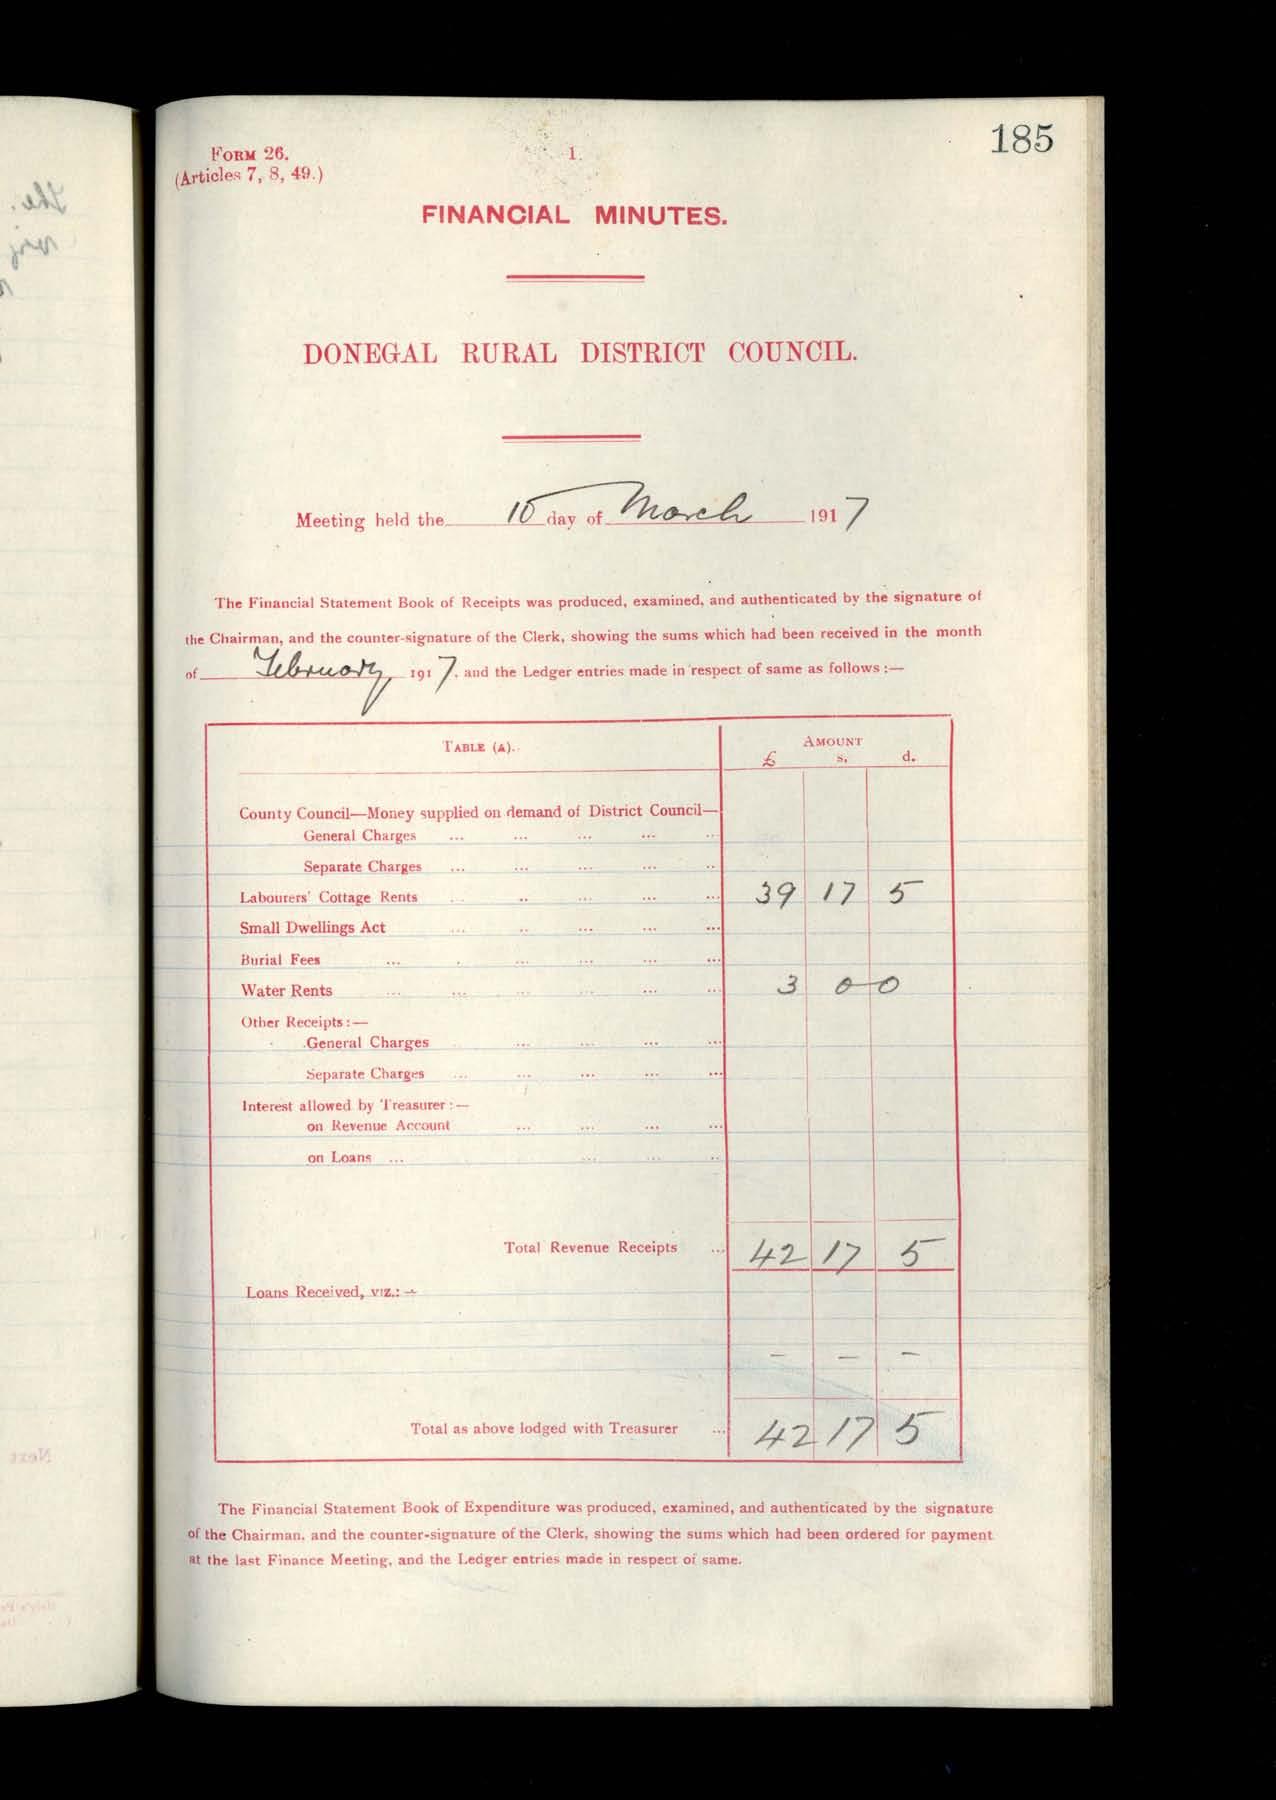 185
FORM 26.
(Articles 7, 8, 49.)
1.
FINANCIAL MINUTES.
DONEGAL RURAL DISTRICT COUNCIL.
Meeting held the 10 day of March 1917
The Financial Statement Book of Receipts was produced, examined, and authenticated by the signature of
the Chairman, and the counter-signature of the Clerk, showing the sums which had been received in the month
of February 1917, and the Ledger entries made in respect of same as follows :—
TABLE (A). AMOUNT
£ s. d.
County Council—Money supplied on demand of District Council—
General Charges ... ... ... ... ...
Separate Charges ... ... ... ... ...
Labourers' Cottage Rents ... ... ... ... ... 39 17 5
Small Dwellings Act ... ... ... ... ...
Burial Fees ... ... ... ... ... ...
Water Rents ... ... ... ... ... ... 3 0 0
Other Receipts :—
General Charges ... ... ... ... ...
Separate Charges ... ... ... ... ...
Interest allowed by Treasurer :—
on Revenue Account ... ... ... ...
on Loans ... ... ... ...
Total Revenue Receipts ... 42 17 5
Loans Received, viz.: —
— — —
Total as above lodged with Treasurer ... 42 17 5
The Financial Statement Book of Expenditure was produced, examined, and authenticated by the signature
of the Chairman, and the counter-signature of the Clerk, showing the sums which had been ordered for payment
at the last Finance Meeting, and the Ledger entries made in respect of same.